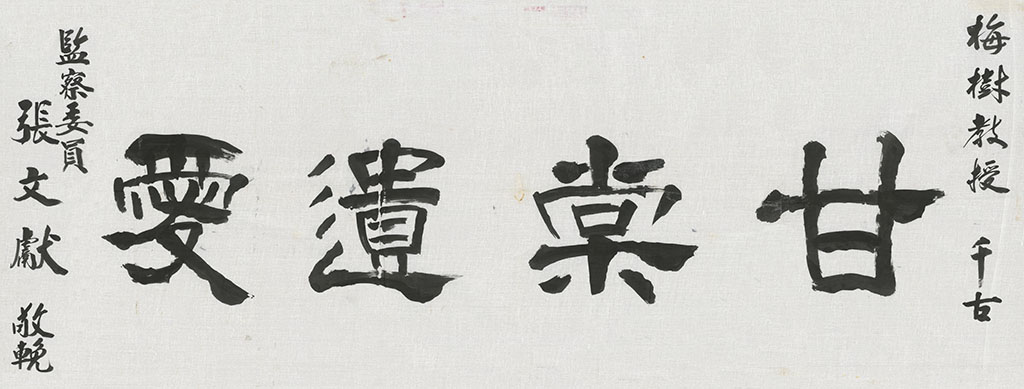 梅樹教授 千古
甘棠遺愛
監察委員
張文獻 敬輓